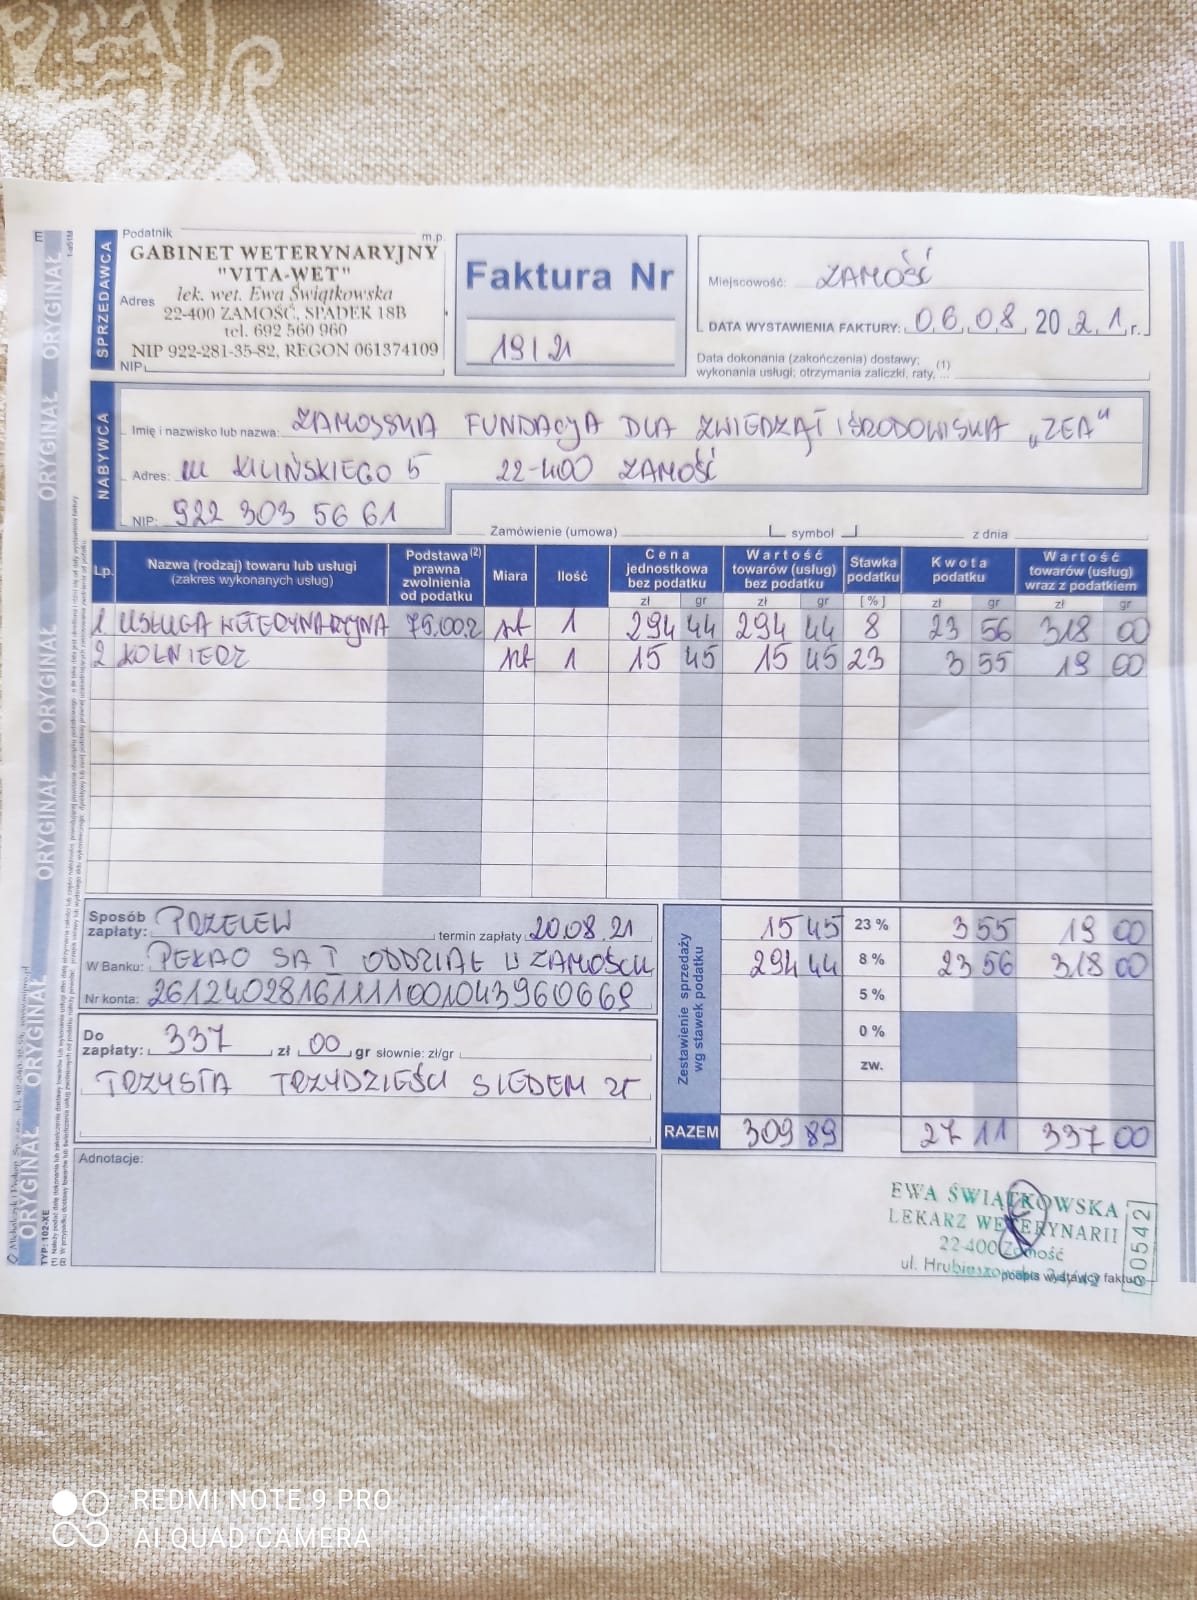 E
1-a51M
ORYGINAŁ ORYGINAŁ ORYGINAŁ ORYGINAŁ ORYGINAŁ ORYGINAŁ
SPRZEDAWCA
Podatnik
m.p.
GABINET WETERYNARYJNY
"VITA-WET"
lek. wet. Ewa Świątkowska
Adres
22-400 ZAMOŚĆ, SPADEK 18B
tel. 692 560 960
NIP 922-281-35-82, REGON 061374109
NIP
Faktura Nr
19/21
Miejscowość: ZAMOŚĆ
DATA WYSTAWIENIA FAKTURY: 06.08.2021r.
Data dokonania (zakończenia) dostawy;
wykonania usługi; otrzymania zaliczki, raty, ... (1)
NABYWCA
Imię i nazwisko lub nazwa: ZAMOJSKA FUNDACJA DLA ZWIERZĄT I ŚRODOWISKA „ZEA"
Adres: ul KILIŃSKIEGO 5 22-400 ZAMOŚĆ
NIP: 922 303 56 61
Zamówienie (umowa) symbol z dnia
Lp. Nazwa (rodzaj) towaru lub usługi (zakres wykonanych usług) Podstawa (2) prawna zwolnienia od podatku Miara Ilość Cena jednostkowa bez podatku Wartość towarów (usług) bez podatku Stawka podatku Kwota podatku Wartość towarów (usług) wraz z podatkiem
zł gr zł gr [%] zł gr zł gr
1 USŁUGA WETERYNARYJNA 75.00.2 szt 1 294 44 294 44 8 23 56 318 00
2 KOŁNIERZ szt 1 15 45 15 45 23 3 55 19 00
Sposób zapłaty: PRZELEW termin zapłaty 20.08.21
W Banku: PEKAO SA I ODDZIAŁ W ZAMOŚCIU
Nr konta: 26124028161111001043960669
Do zapłaty: 337 zł 00 gr słownie: zł/gr
TRZYSTA TRZYDZIEŚCI SIEDEM zł
Adnotacje:
Zestawienie sprzedaży
wg stawek podatku
15 45 23 % 3 55 19 00
294 44 8 % 23 56 318 00
5 %
0 %
zw.
RAZEM 309 89 27 11 337 00
EWA ŚWIĄTKOWSKA
LEKARZ WETERYNARII
22-400 Zamość
00542
podpis wystawcy faktury
TYP: 102-XE
REDMI NOTE 9 PRO
AI QUAD CAMERA